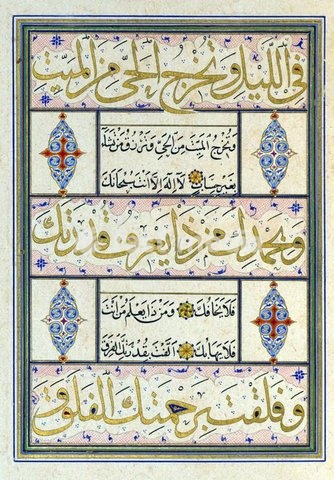 في الليل وتخرج الحي من الميت
وتخرج الميت من الحي وترزق من تشاء
بغير حساب لا إله إلا أنت سبحانك
وبحمدك من ذا يعرف قدرتك
فلا يخافك ومن ذا يعلم ما أنت
فلا يهابك ألفت بقدرتك الفرق
وفلقت برحمتك الفلق و